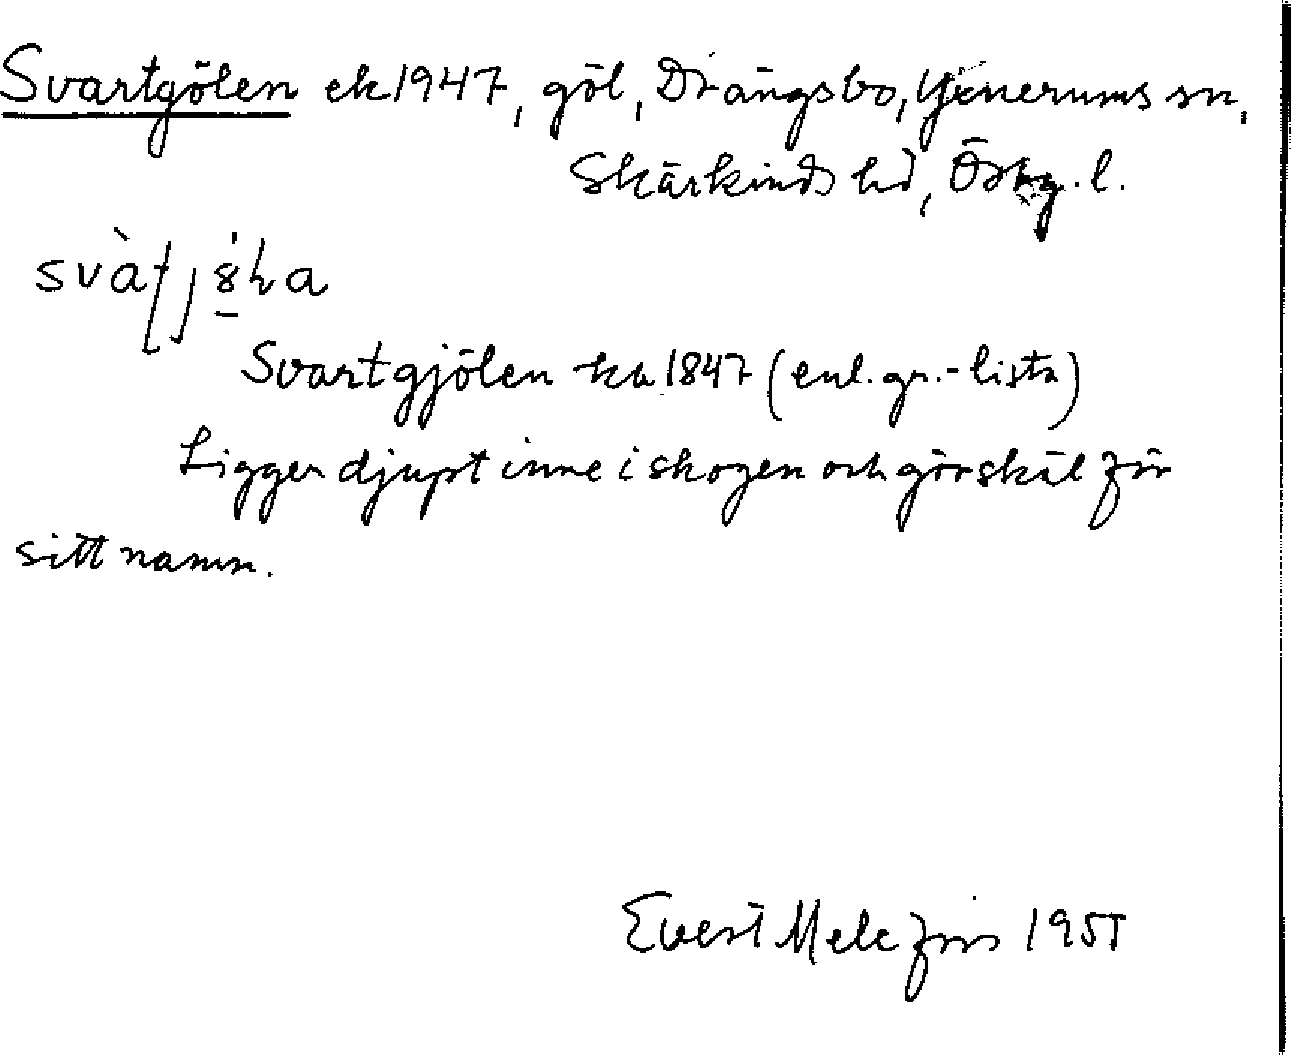 Svartgölen ek 1947, göl, Drängsbo, Yxnerums sn,
Skärkinds hd, Östg. l.
Svartgjölen ka 1847 (enl. gr.-lista)
Ligger djupt inne i skogen och gör skäl för
sitt namn.
Evert Melefors 1955